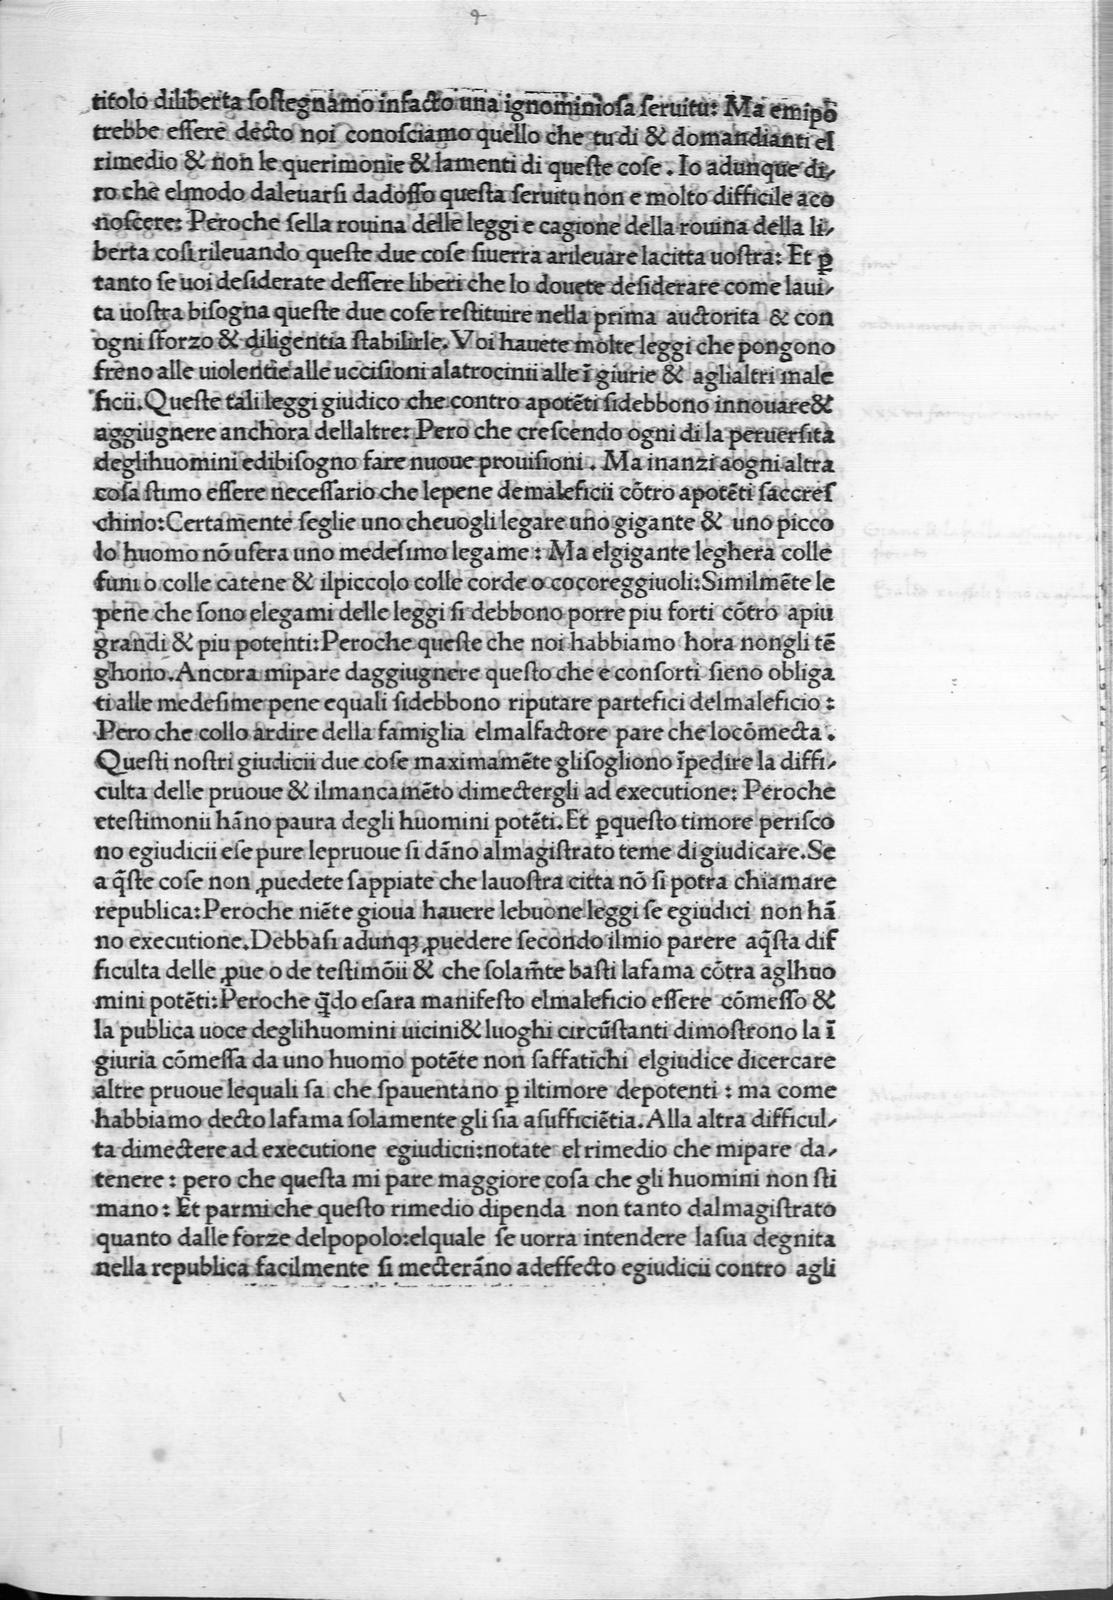 titolo diliberta ſoſtegnamo infacto una ignominioſa ſeruitu: Ma emipō
trebbe eſſere decto noi conoſciamo quello che tu di & domandianti el
rimedio & non le querimonie & lamenti di queſte coſe. Io adunque di,
ro che elmodo daleuarſi dadoſſo queſta ſeruitu non e molto difficile aco
noſcere: Peroche ſella rouina delle leggi e cagione della rouina della li,
berta coſi rileuando queſte due coſe ſiuerra arileuare lacitta uoſtra: Et ꝑ
tanto ſe uoi deſiderate deſſere liberi che lo douete deſiderare come laui,
ta uoſtra biſogna queſte due coſe reſtituire nella prima auctorita & con
ogni ſforzo & diligentia ſtabilirle. Voi hauete molte leggi che pongono
freno alle uiolentie alle ucciſioni alatrocinii alle ī giurie & aglialtri male
ficii. Queſte tali leggi giudico che contro apotēti ſidebbono innouare &
aggiugnere anchora dellaltre: Pero che creſcendo ogni di la peruerſita
deglihuomini edibiſogno fare nuoue prouiſioni. Ma inanzi aogni altra
coſa ſtimo eſſere neceſſario che lepene demaleficii cōtro apotēti ſaccreſ
chino: Certamente ſeglie uno cheuogli legare uno gigante & uno picco
lo huomo nō uſera uno medeſimo legame: Ma elgigante leghera colle
funi o colle catene & ilpiccolo colle corde o cocoreggiuoli: Similmēte le
pene che ſono elegami delle leggi ſi debbono porre piu forti cōtro apiu
grandi & piu potenti: Peroche queſte che noi habbiamo hora nongli tē
ghono. Ancora mipare daggiugnere queſto che e conſorti ſieno obliga
ti alle medeſime pene equali ſidebbono riputare partefici delmaleficio:
Pero che collo ardire della famiglia elmalfactore pare che locōmecta.
Queſti noſtri giudicii due coſe maximamēte gliſogliono īpedire la diffi,
culta delle pruoue & ilmancamēto dimectergli ad executione: Peroche
eteſtimonii hāno paura degli huomini potēti. Et ꝑqueſto timore periſco
no egiudicii eſe pure lepruoue ſi dāno almagiſtrato teme di giudicare. Se
a q̄ſte coſe non ꝓuedete ſappiate che lauoſtra citta nō ſi potra chiamare
republica: Peroche niēte gioua hauere lebuone leggi ſe egiudici non hā
no executione. Debbaſi adunqꝫ ꝓuedere ſecondo ilmio parere aq̄ſta dif
ficulta delle ꝓue o de teſtimōii & che ſolam̄te baſti lafama cōtra aglhuo
mini potēti: Peroche q̄do eſara manifeſto elmaleficio eſſere cōmeſſo &
la publica uoce deglihuomini uicini & luoghi circūſtanti dimoſtrono la ī
giuria cōmeſſa da uno huomo potēte non ſaffatichi elgiudice dicercare
altre pruoue lequali ſa che ſpauentano ꝑ iltimore depotenti: ma come
habbiamo decto lafama ſolamente gli ſia aſufficiētia. Alla altra difficul,
ta dimectere ad executione egiudicii: notate el rimedio che mipare da,
tenere: pero che queſta mi pare maggiore coſa che gli huomini non ſti
mano: Et parmi che queſto rimedio dipenda non tanto dalmagiſtrato
quanto dalle forze delpopolo: elquale ſe uorra intendere laſua degnita
nella republica facilmente ſi mecterāno adeffecto egiudicii contro agli